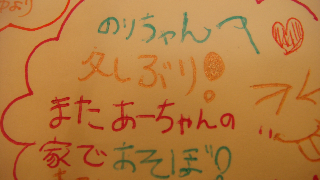 のりちゃんへ
久しぶり!
またあーちゃんの
家であそぼ!